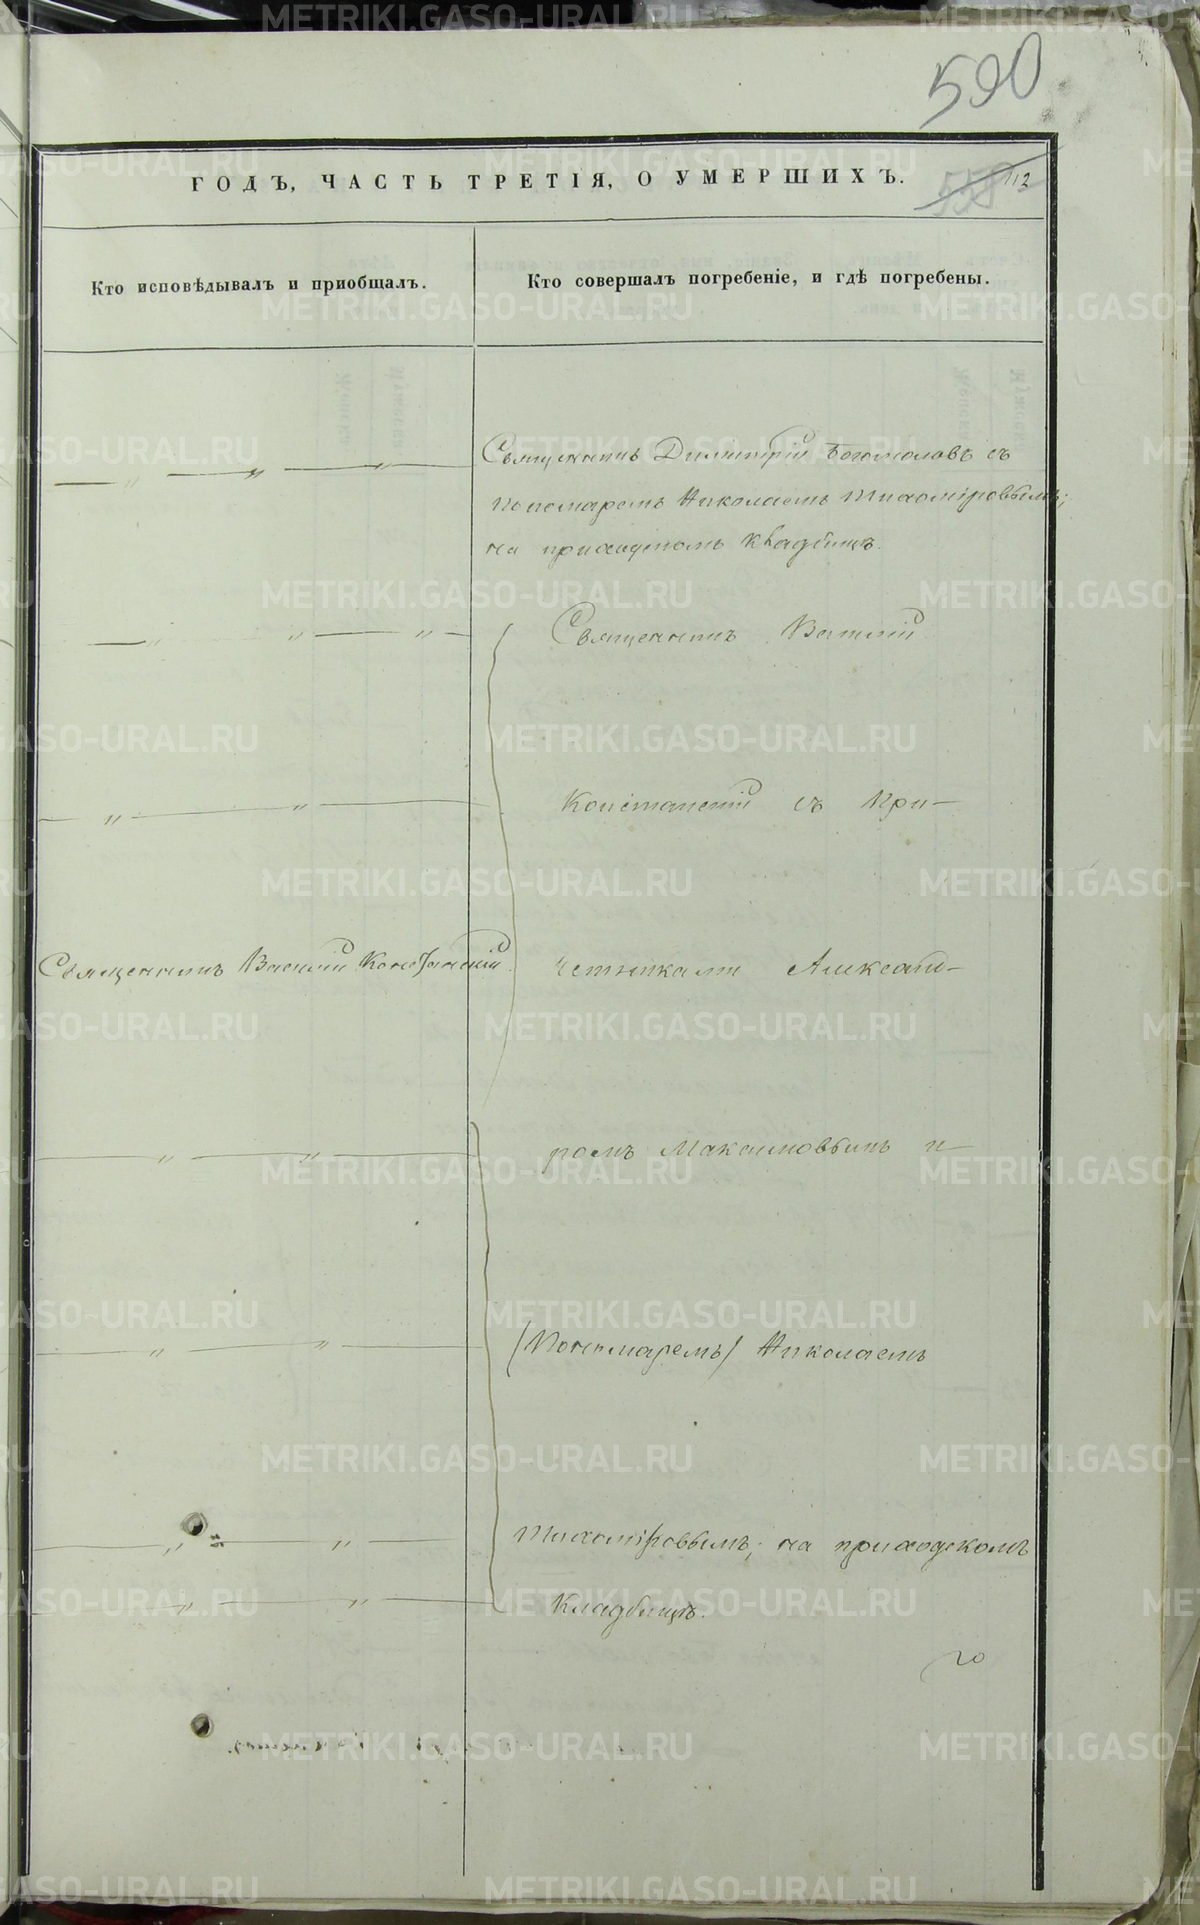 590
ГОДЪ, ЧАСТЬ ТРЕТІЯ, О УМЕРШИХЪ.
112
Кто исповѣдывалъ и приобщалъ.
Кто совершалъ погребеніе, и гдѣ погребены.
Священникъ Димитрій Богомоловъ съ
пономаремъ Николаемъ Тихоміровымъ;
на приходскомъ кладбищѣ.
Священникъ Василій
Констанскій съ При-
Священникъ Василій Констанскій.
четниками Александ-
ромъ Максимовымъ и
(Пономаремъ) Николаемъ
Тихоміровымъ; на приходскомъ
кладбищѣ.
METRIKI.GASO-URAL.RU